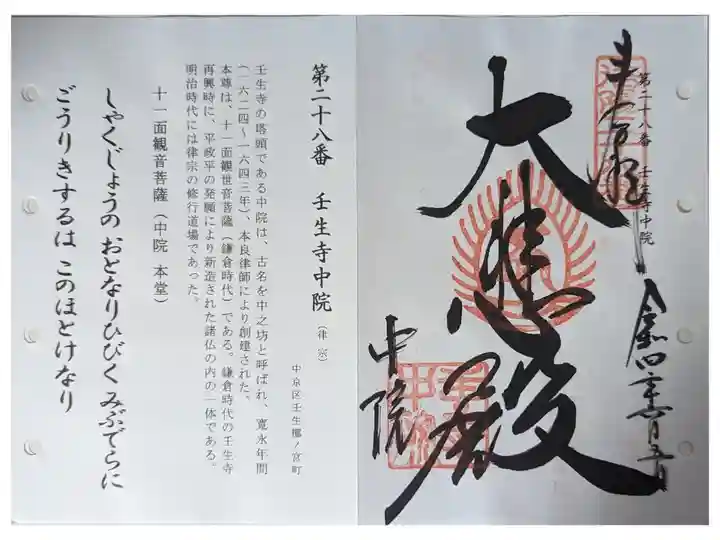 奉拝
第二十八番 壬生寺中院
大悲殿
中院
第二十八番 壬生寺中院（律宗）
中京区壬生梛ノ宮町
壬生寺の塔頭である中院は、古名を中之坊と呼ばれ、寛永年間
（一六二四～一六四三年）、本良律師により創建された。
本尊は、十一面観世音菩薩（鎌倉時代）である。鎌倉時代の壬生寺
再興時に、平政平の発願により新造された諸仏の内の一体である。
明治時代には律宗の修行道場であった。
十一面観音菩薩（中院 本堂）
しゃくじょうの おとなりひびく みぶでらに
ごうりきするは このほとけなり